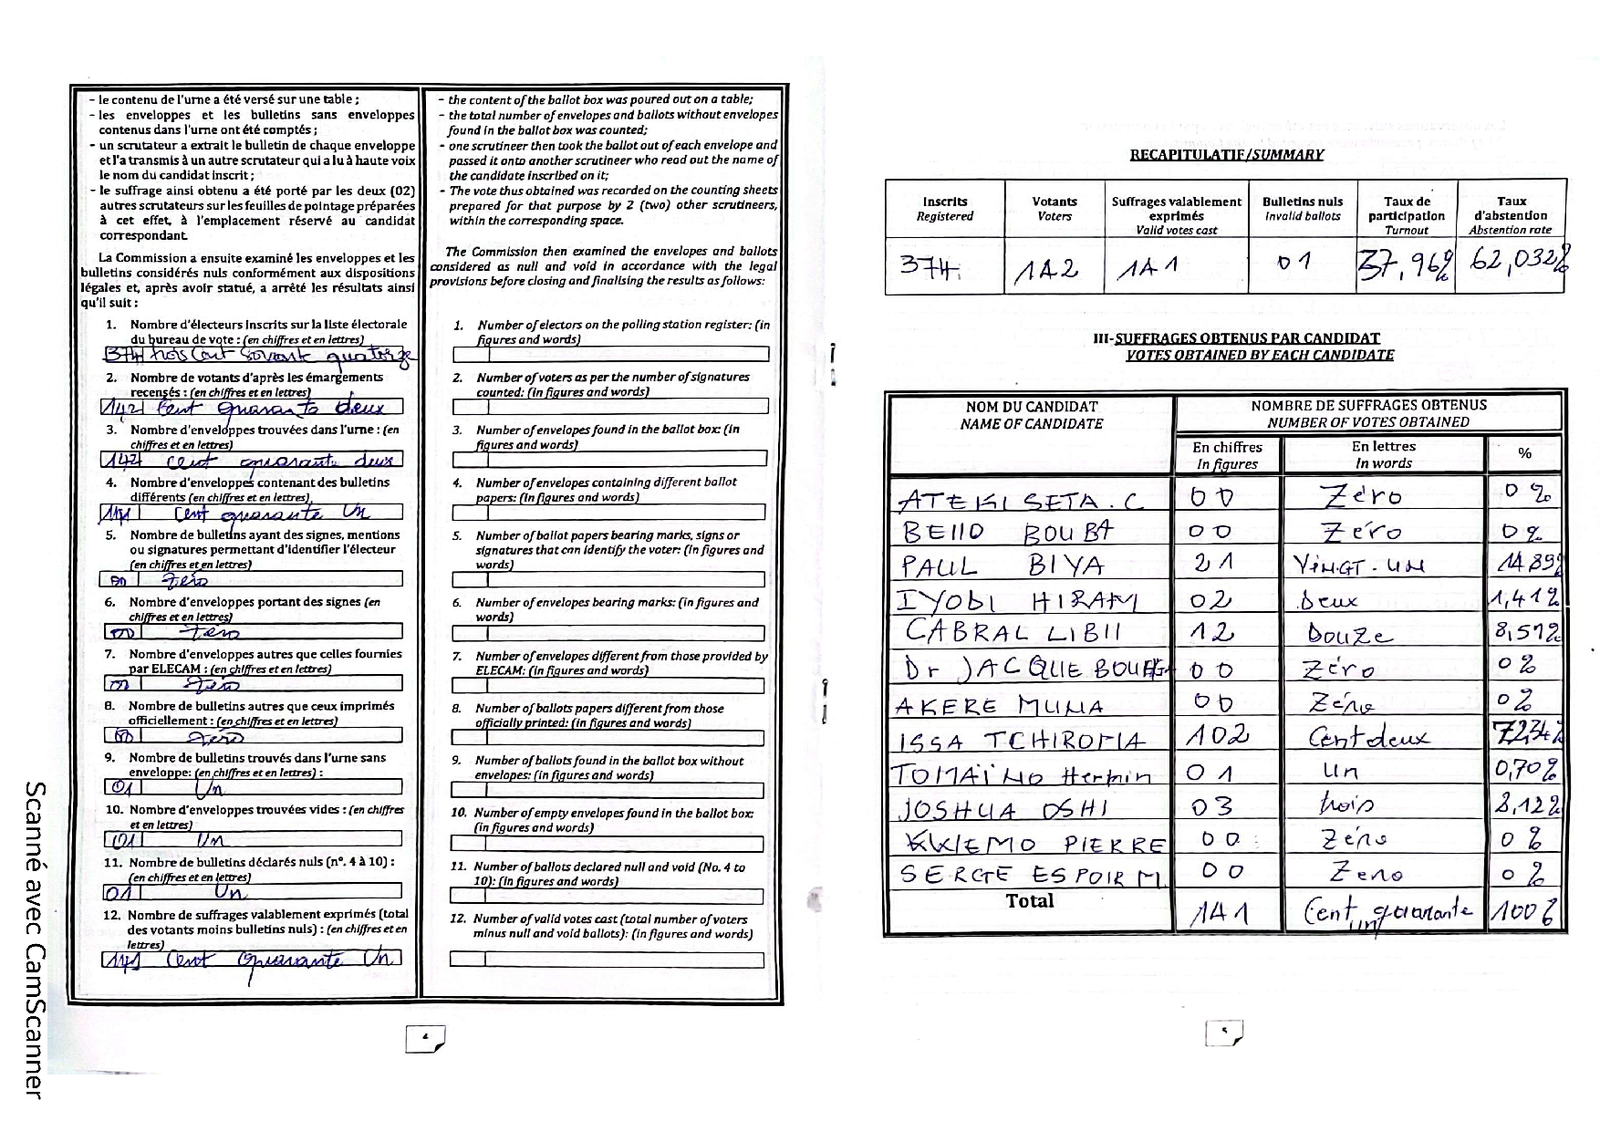 - le contenu de l'urne a été versé sur une table ;
- les enveloppes et les bulletins sans enveloppes
contenus dans l'urne ont été comptés ;
- un scrutateur a extrait le bulletin de chaque enveloppe
et l'a transmis à un autre scrutateur qui a lu à haute voix
le nom du candidat inscrit ;
- le suffrage ainsi obtenu a été porté par les deux (02)
autres scrutateurs sur les feuilles de pointage préparées
à cet effet, à l'emplacement réservé au candidat
correspondant.
La Commission a ensuite examiné les enveloppes et les
bulletins considérés nuls conformément aux dispositions
légales et, après avoir statué, a arrêté les résultats ainsi
qu'il suit :
1. Nombre d'électeurs inscrits sur la liste électorale
du bureau de vote : (en chiffres et en lettres)
374 trois cent soixant quatorze
2. Nombre de votants d'après les émargements
recensés : (en chiffres et en lettres)
142 Cent quarante deux
3. Nombre d'enveloppes trouvées dans l'urne : (en
chiffres et en lettres)
142 cent quarante deux
4. Nombre d'enveloppes contenant des bulletins
différents (en chiffres et en lettres)
141 Cent quarante Un
5. Nombre de bulletins ayant des signes, mentions
ou signatures permettant d'identifier l'électeur
(en chiffres et en lettres)
00 Zéro
6. Nombre d'enveloppes portant des signes (en
chiffres et en lettres)
00 Zéro
7. Nombre d'enveloppes autres que celles fournies
par ELECAM : (en chiffres et en lettres)
00 Zéro
8. Nombre de bulletins autres que ceux imprimés
officiellement : (en chiffres et en lettres)
00 Zéro
9. Nombre de bulletins trouvés dans l'urne sans
enveloppe: (en chiffres et en lettres) :
01 Un
10. Nombre d'enveloppes trouvées vides : (en chiffres
et en lettres)
01 Un
11. Nombre de bulletins déclarés nuls (n°. 4 à 10) :
(en chiffres et en lettres)
01 Un
12. Nombre de suffrages valablement exprimés (total
des votants moins bulletins nuls) : (en chiffres et en
lettres)
141 Cent Quarante Un
- the content of the ballot box was poured out on a table;
- the total number of envelopes and ballots without envelopes
found in the ballot box was counted;
- one scrutineer then took the ballot out of each envelope and
passed it onto another scrutineer who read out the name of
the candidate inscribed on it;
- The vote thus obtained was recorded on the counting sheets
prepared for that purpose by 2 (two) other scrutineers,
within the corresponding space.
The Commission then examined the envelopes and ballots
considered as null and void in accordance with the legal
provisions before closing and finalising the results as follows:
1. Number of electors on the polling station register: (in
figures and words)
2. Number of voters as per the number of signatures
counted: (in figures and words)
3. Number of envelopes found in the ballot box: (in
figures and words)
4. Number of envelopes containing different ballot
papers: (in figures and words)
5. Number of ballot papers bearing marks, signs or
signatures that can identify the voter: (in figures and
words)
6. Number of envelopes bearing marks: (in figures and
words)
7. Number of envelopes different from those provided by
ELECAM: (in figures and words)
8. Number of ballots papers different from those
officially printed: (in figures and words)
9. Number of ballots found in the ballot box without
envelopes: (in figures and words)
10. Number of empty envelopes found in the ballot box:
(in figures and words)
11. Number of ballots declared null and void (No. 4 to
10): (in figures and words)
12. Number of valid votes cast (total number of voters
minus null and void ballots): (in figures and words)
4
Scanné avec CamScanner
RECAPITULATIF/SUMMARY
Inscrits Votants Suffrages valablement Bulletins nuls Taux de Taux
Registered Voters exprimés Invalid ballots participation d'abstention
Valid votes cast Turnout Abstention rate
374 142 141 01 37,96% 62,032%
III-SUFFRAGES OBTENUS PAR CANDIDAT
VOTES OBTAINED BY EACH CANDIDATE
NOM DU CANDIDAT NOMBRE DE SUFFRAGES OBTENUS
NAME OF CANDIDATE NUMBER OF VOTES OBTAINED
En chiffres En lettres %
In figures In words
ATEKI SETA.C 00 Zéro 0 %
BELLO BOUBA 00 Zéro 0 %
PAUL BIYA 21 VINGT-UN 14 89%
IYODI HIRAM 02 Deux 1,41%
CABRAL LIBII 12 Douze 8,51%
Dr JACQUE BOUGA 00 Zéro 0 %
AKERE MUNA 00 Zéro 0%
ISSA TCHIROMA 102 Cent deux 72,34%
TOMAÏNO Hermin 01 un 0,70%
JOSHUA OSHI 03 trois 2,12%
KWEMO PIERRE 00 Zéro 0 %
SERGE ESPOIR M. 00 Zero 0 %
Total 141 Cent quarante un 100%
5